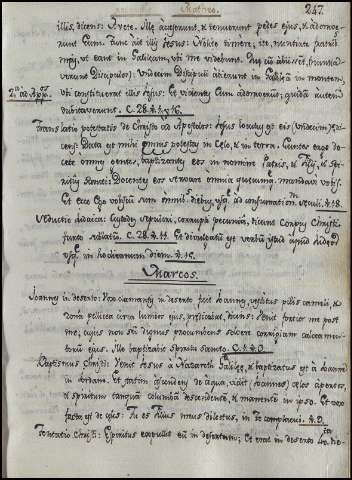 Matheo. 247
illis, dicens: Avete. Ille accesserunt, et tenuerunt pedes ejus, et adora-
runt Eum. Tunc ait illis Jesus: Nolite timere, ite, nuntiate fratrib.
meis, ut eant in Galilaeam, ibi me videbunt.
verunt Discipulos) Undecim Discipuli abierunt in Galilaeam in montem,
ubi constituerat illis Jesus: Et videntes Eum adoraverunt; quidam autem
dubitaverunt. C. 28. 16.
Translatio potestatis de Christo ad Apostolos: Jesus locutus est eis (undecim) di-
cens: Data est mihi omnis potestas in Celo, et in terra. Euntes ergo do-
cete omnes gentes, baptizantes eos in nomine Patris, et Filij, et Spi-
ritus Sancti: Docentes eos servare omnia quecumq. mandavi vobis.
Et ecce Ego vobiscum sum omnib. diebus, usq. ad consumationem seculi. 18.
Seductio Judaica: Custodes sepulcri, corrupti pecunia, dicunt Corpus Christi
furto sublatum. C. 28. 11. Et divulgatum est verbum istud apud Judeos
usq. in hodiernum diem. 15.
Marcos.
Joannes in deserto: Vox clamantis in deserto fuit Joannes, vestitus pilis cameli, et
zona pellicea circa lumbos ejus, predicabat, dicens: Venit fortior me post
me, cujus non sum dignus procumbens solvere corrigiam calceamen-
torum ejus. Ille baptizabit Spiritu Sancto. C. 1.
Baptismus Christi: Venit Jesus a Nazareth Galilee, et baptizatus est a Joanne
in Jordane. Et statim ascendens de aqua, vidit (Joannes) celos apertos,
et Spiritum tanquam columbam descendentem, et manentem in ipso. Et vox
facta est de celis: Tu es Filius meus dilectus, in Te complacui. 9.
Tentatio Christi: Spiritus expulit eum in desertum; Et erat in deserto 40.